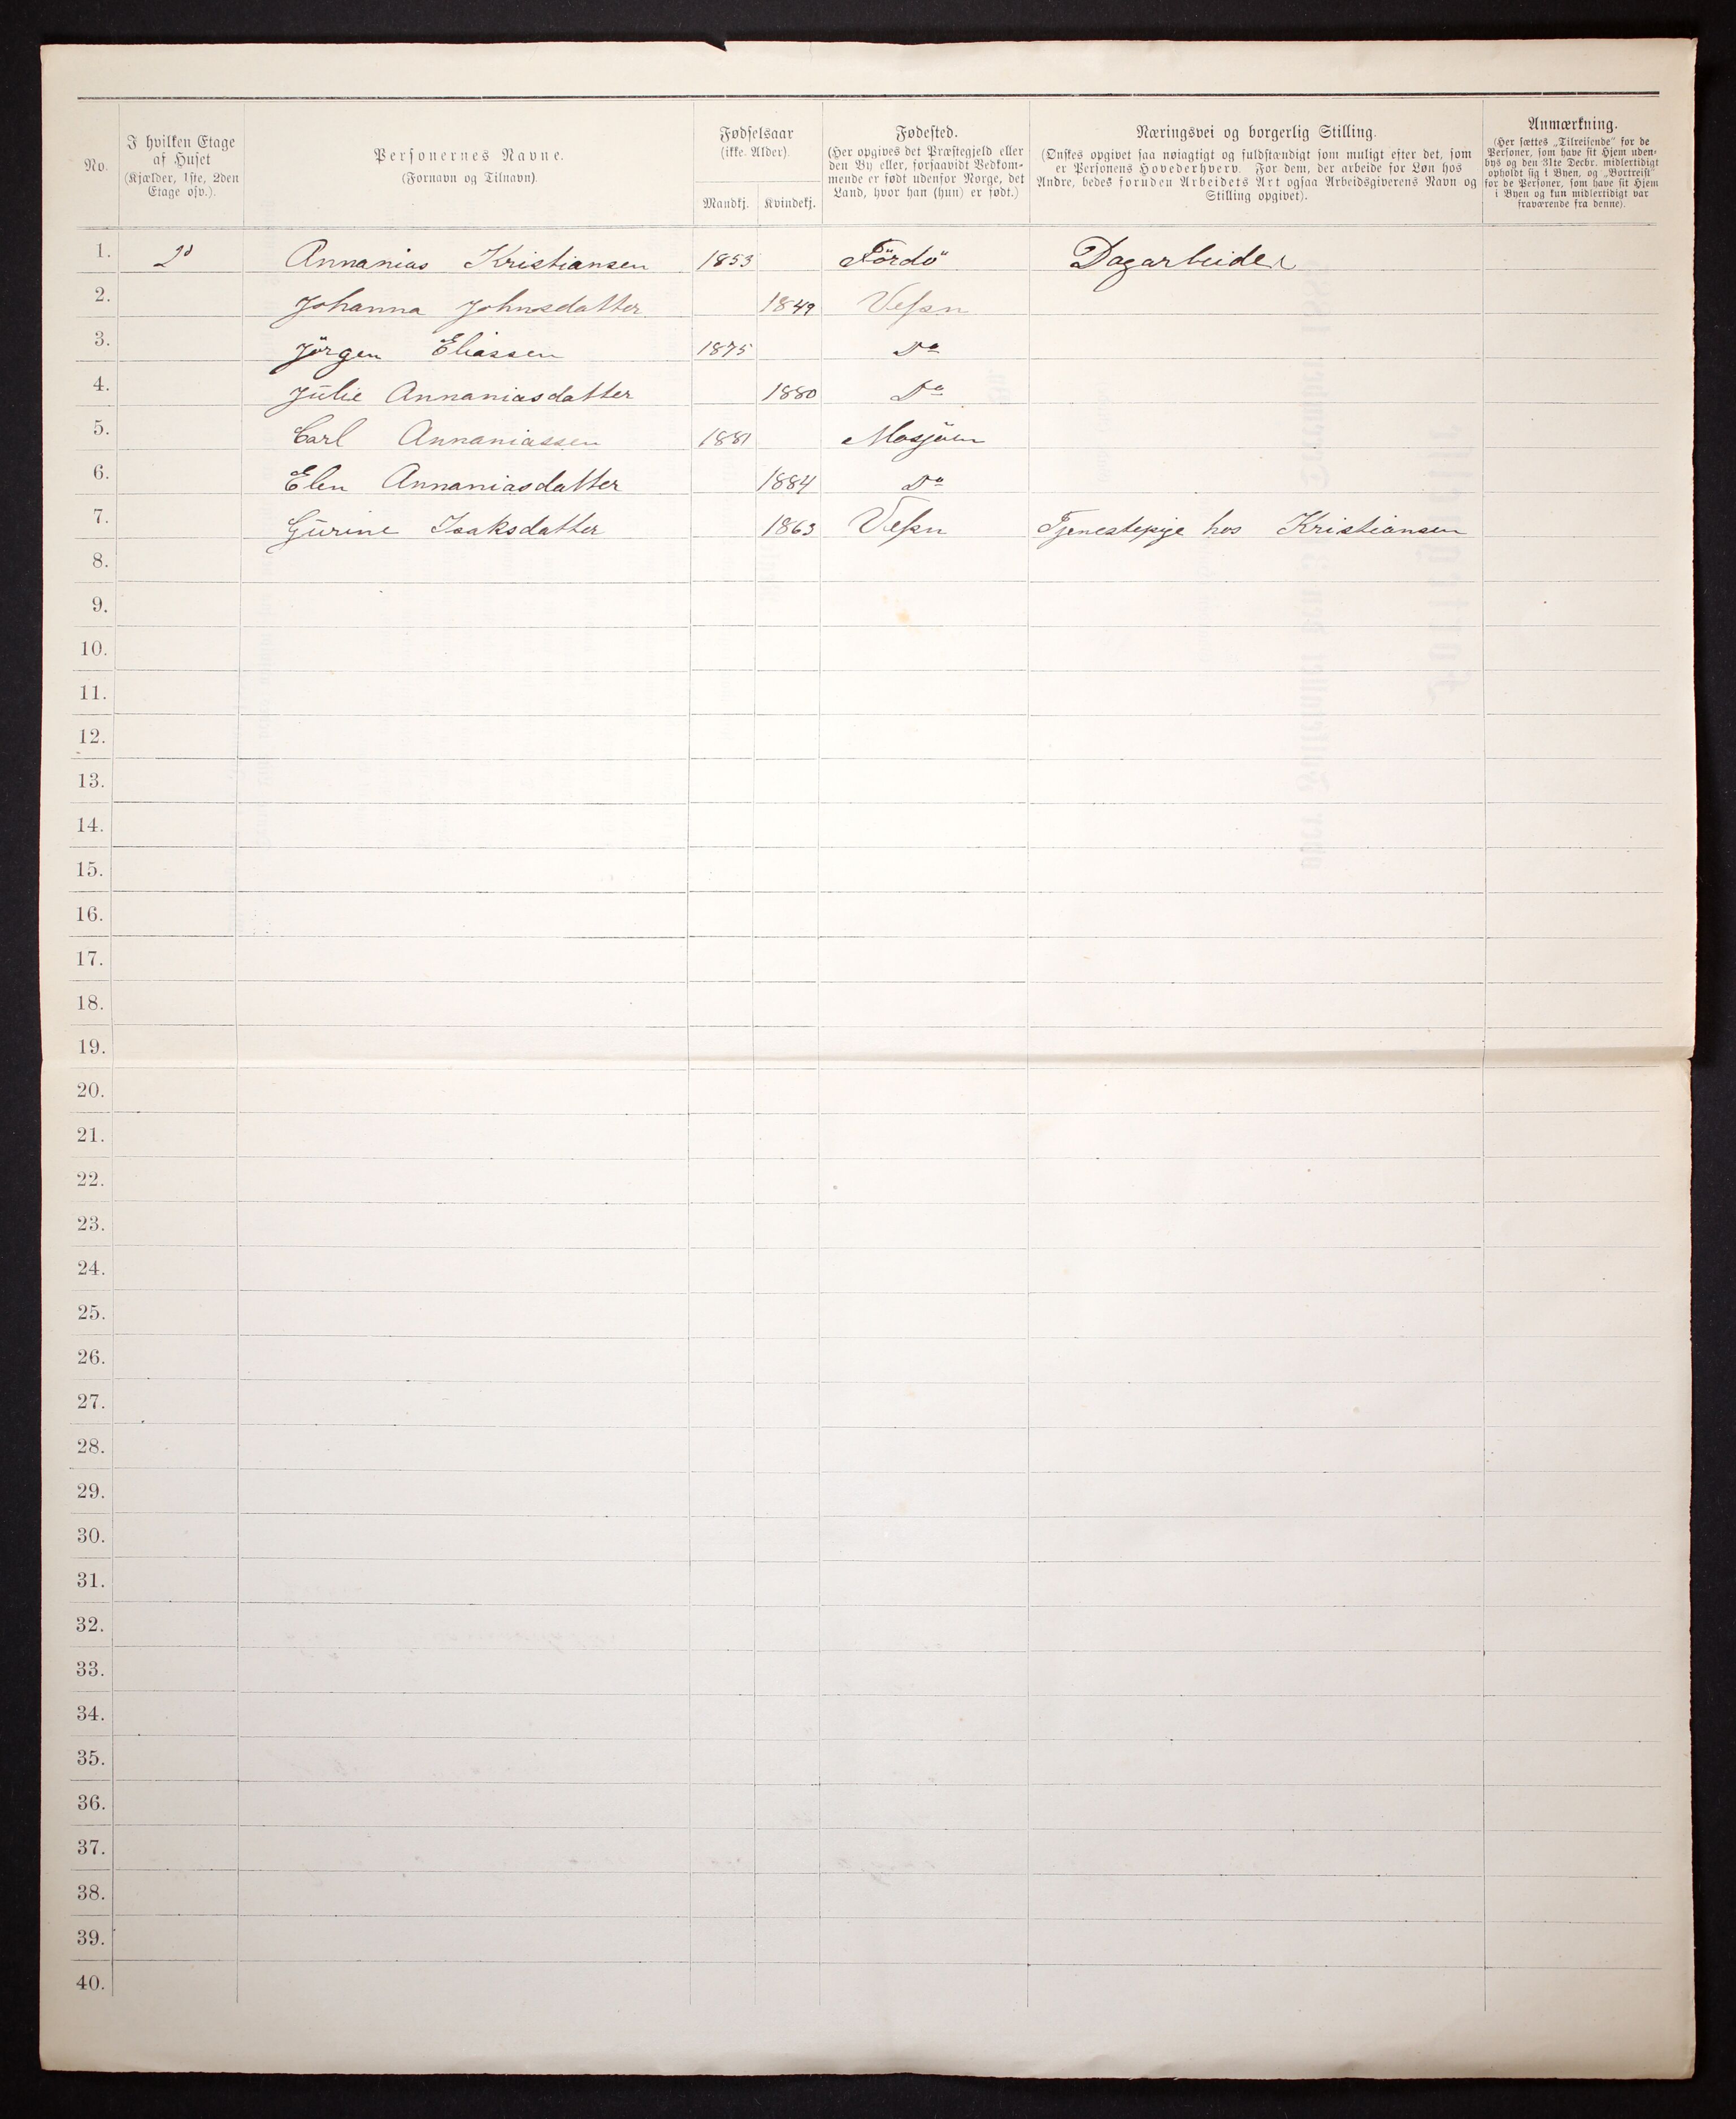 No.
I hvilken Etage
af Huset
(Kjælder, 1ste, 2den
Etage osv.).
Personernes Navne.
(Fornavn og Tilnavn).
Fødselsaar
(ikke Alder).
Mandkj. Kvindekj.
Fødested.
(Her opgives det Præstegjeld eller
den By eller, forsaavidt Vedkom-
mende er født udenfor Norge, det
Land, hvor han (hun) er født.)
Næringsvei og borgerlig Stilling.
(Ønskes opgivet saa nøiagtigt og fuldstændigt som muligt efter det, som
er Personens Hovederhverv. For dem, der arbeide for Løn hos
Andre, bedes foruden Arbeidets Art ogsaa Arbeidsgiverens Navn og
Stilling opgivet).
Anmærkning.
(Her sættes „Tilreisende" for de
Personer, som have sit Hjem uden-
bys og den 31te Decbr. midlertidigt
opholdt sig i Byen, og „Bortreist"
for de Personer, som have sit Hjem
i Byen og kun midlertidigt var
fraværende fra denne).
1. Annanias Kristiansen 1853 Dagarbeider
2. Johanna Johnsdatter 1849 Vefsn
3. Jörgen Eliassen 1875 Do
4. Julie Annaniasdatter 1880 Do
5. Carl Annaniassen 1881 Mosjöen
6. Elen Annaniasdatter 1884 Do
7. Gurine Isaksdatter 1863 Vefsn Tjenestepige hos Kristiansen
8.
9.
10.
11.
12.
13.
14.
15.
16.
17.
18.
19.
20.
21.
22.
23.
24.
25.
26.
27.
28.
29.
30.
31.
32.
33.
34.
35.
36.
37.
38.
39.
40.